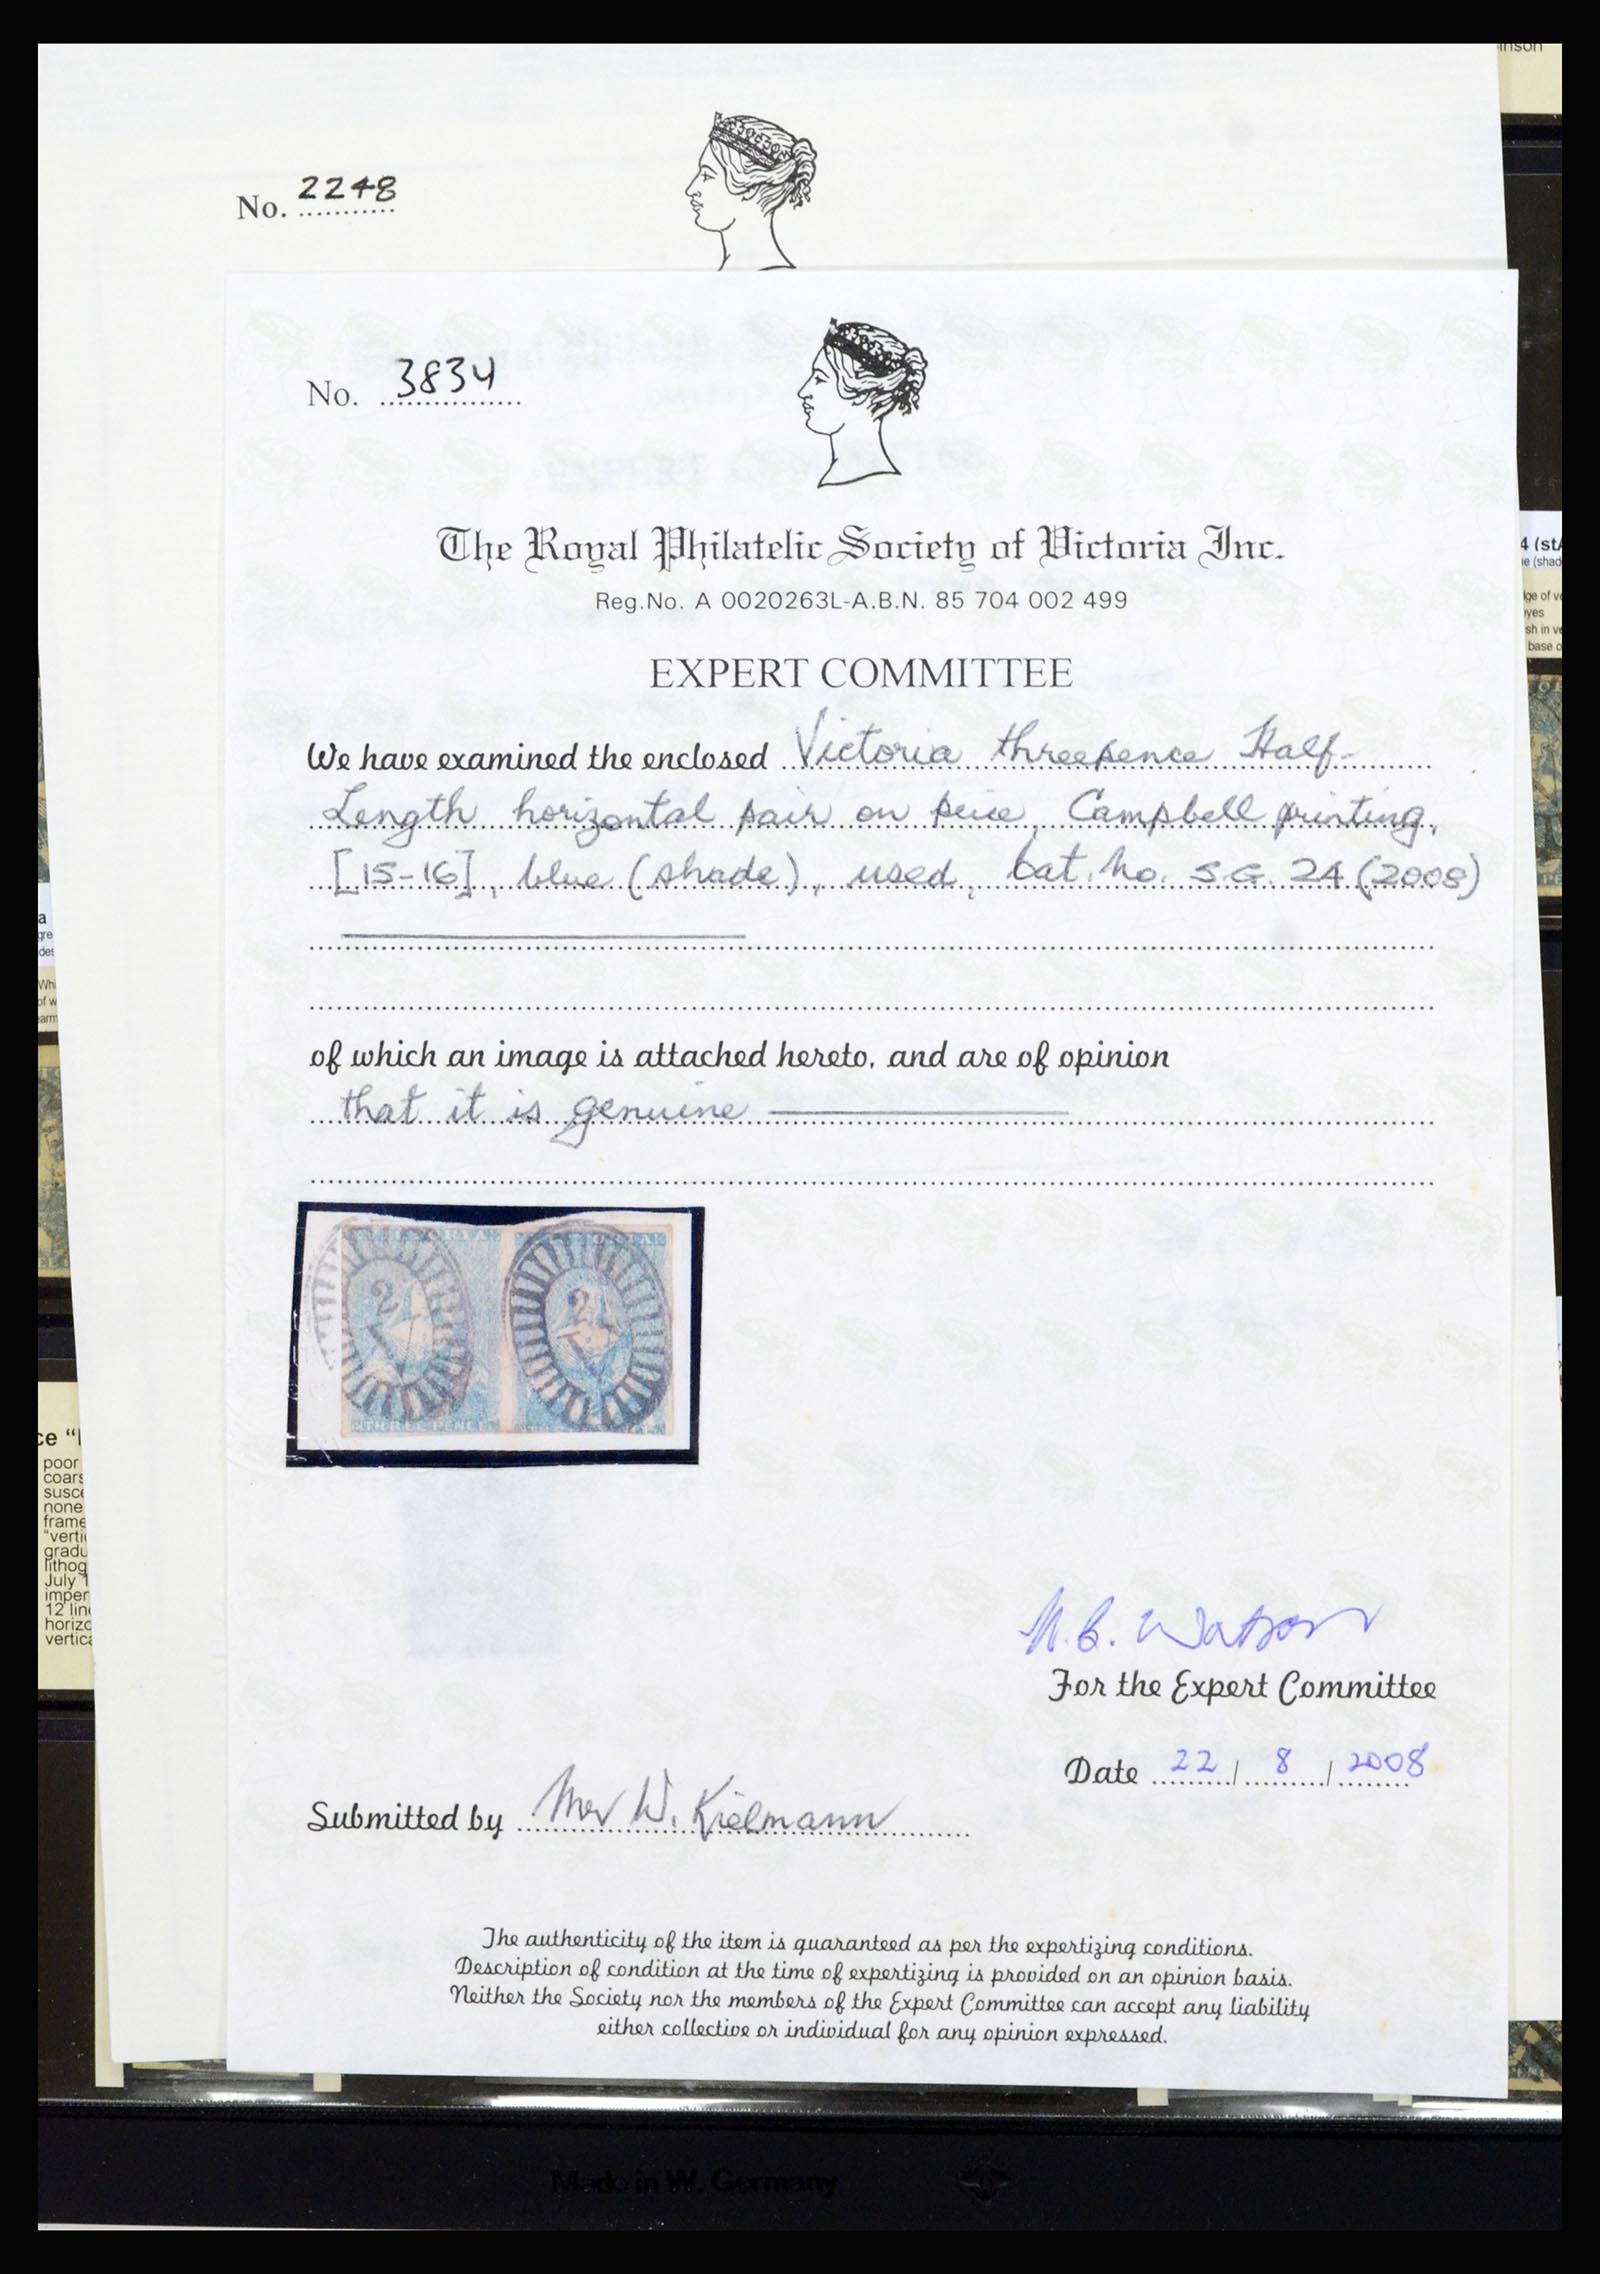 inson
No. 2248
No. 3834
The Royal Philatelic Society of Victoria Inc.
Reg.No. A 0020263L-A.B.N. 85 704 002 499
EXPERT COMMITTEE
We have examined the enclosed Victoria threepence Half-
Length horizontal pair on peice, Campbell printing,
[15-16], blue (shade), used, Cat. No. S.G. 24 (2008)
of which an image is attached hereto, and are of opinion
that it is genuine
THREE PENCE
For the Expert Committee
M.B. Watson
Date 22 / 8 / 2008
Submitted by W. Kielmann
The authenticity of the item is guaranteed as per the expertizing conditions.
Description of condition at the time of expertizing is provided on an opinion basis.
Neither the Society nor the members of the Expert Committee can accept any liability
either collective or individual for any opinion expressed.
poor
coars
susce
none
frame
"verti
gradu
lithog
July 1
imper
12 line
horizo
vertica
Made in W. Germany